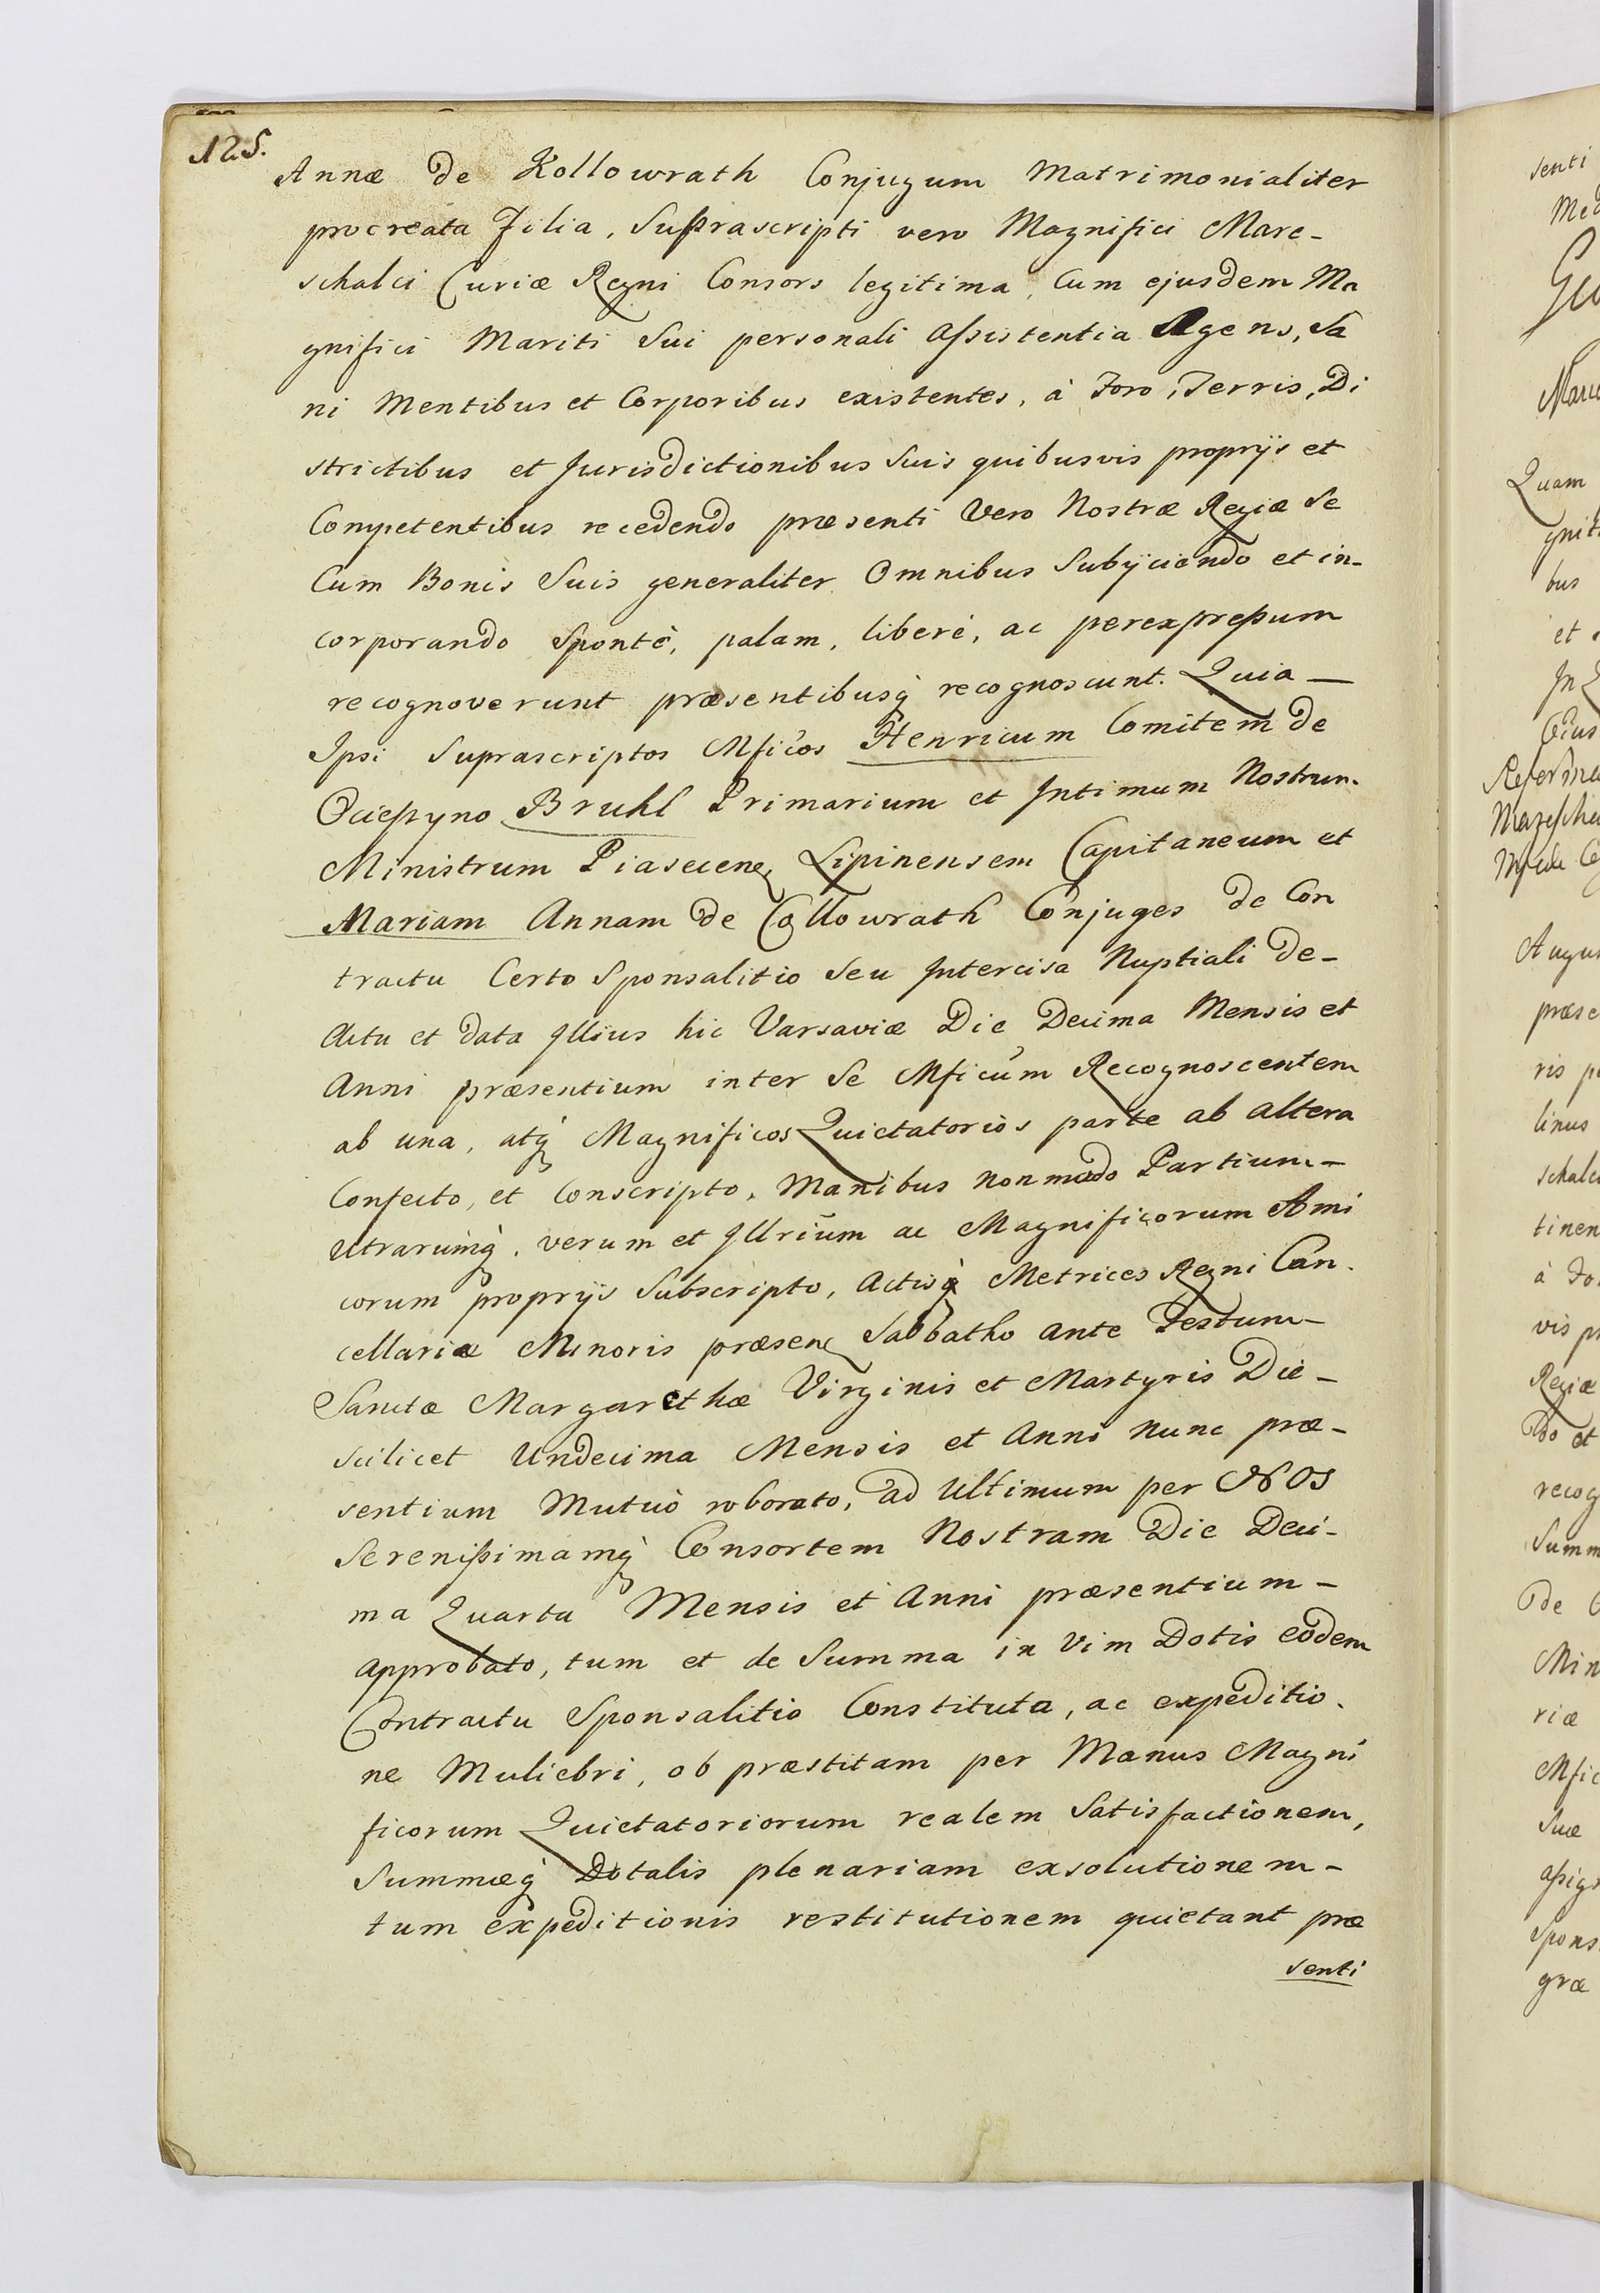 125.
Annæ de Kollowrath Conjugum Matrimonialiter
procreata Filia, Suprascripti vero Magnifici Mare-
schalci Curiæ Regni Consors legitima, Cum ejusdem Ma
gnifici Mariti Sui personali assistentia Agens, Sa
ni Mentibus et Corporibus existentes, à Foro, Terris, Di
strictibus et Jurisdictionibus Suis quibusvis proprijs et
Competentibus recedendo præsenti Vero Nostræ Regiæ Se
Cum Bonis Suis generaliter Omnibus Subijciendo et in-
corporando Spontè, palam, liberè, ac perexpressum
recognoverunt præsentibusq̀ recognoscunt. Quia —
Ipsi Suprascriptos Mficos Henricum Comitem de
Ociessyno Bruhl Primarium et Intimum Nostrum.
Ministrum Piasecen, Lipinensem Capitaneum et
Mariam Annam de Collowrath Conjuges de Con
tractu Certo Sponsalitio Seu Intercisa Nuptiali de-
Actu et data Illius hic Varsaviæ Die Decima Mensis et
Anni præsentium inter Se Mficum Recognoscentem
ab una, atq̀ Magnificos Quietatorios parte ab altera
Confecto, et Conscripto, Manibus non modo Partium-
utrarumq̀, verum et Illrium ac Magnificorum Ami
corum proprijs Subscripto, Actisq̀ Metrices Regni Can.
cellariæ Minoris præsen Sabbatho ante Festum-
Sanctæ Margarethæ Virginis et Martyris Die-
scilicet Undecima Mensis et Anni nunc præ-
sentium Mutuò roborato, ad Ultimum per NOS
Serenissimamq̀ Consortem Nostram Die Deci-
ma Quarta Mensis et Anni præsentium-
approbato, tum et de Summa in Vim Dotis eodem
Contractu Sponsalitio Constituta, ac expeditio.
ne Muliebri, ob præstitam per Manus Magni
ficorum Quietatoriorum realem Satisfactionem,
Summæq̀ Dotalis plenariam exsolutionem-
tum expeditionis restitutionem quietant præ
senti
senti
Quam
bus
et
Ejus
Augus
præse
ris
linus
schalci
tinen
vis
Regiæ
do et
recog
Summ
de
Min
riæ
Mfic
Suæ
Spons
græ